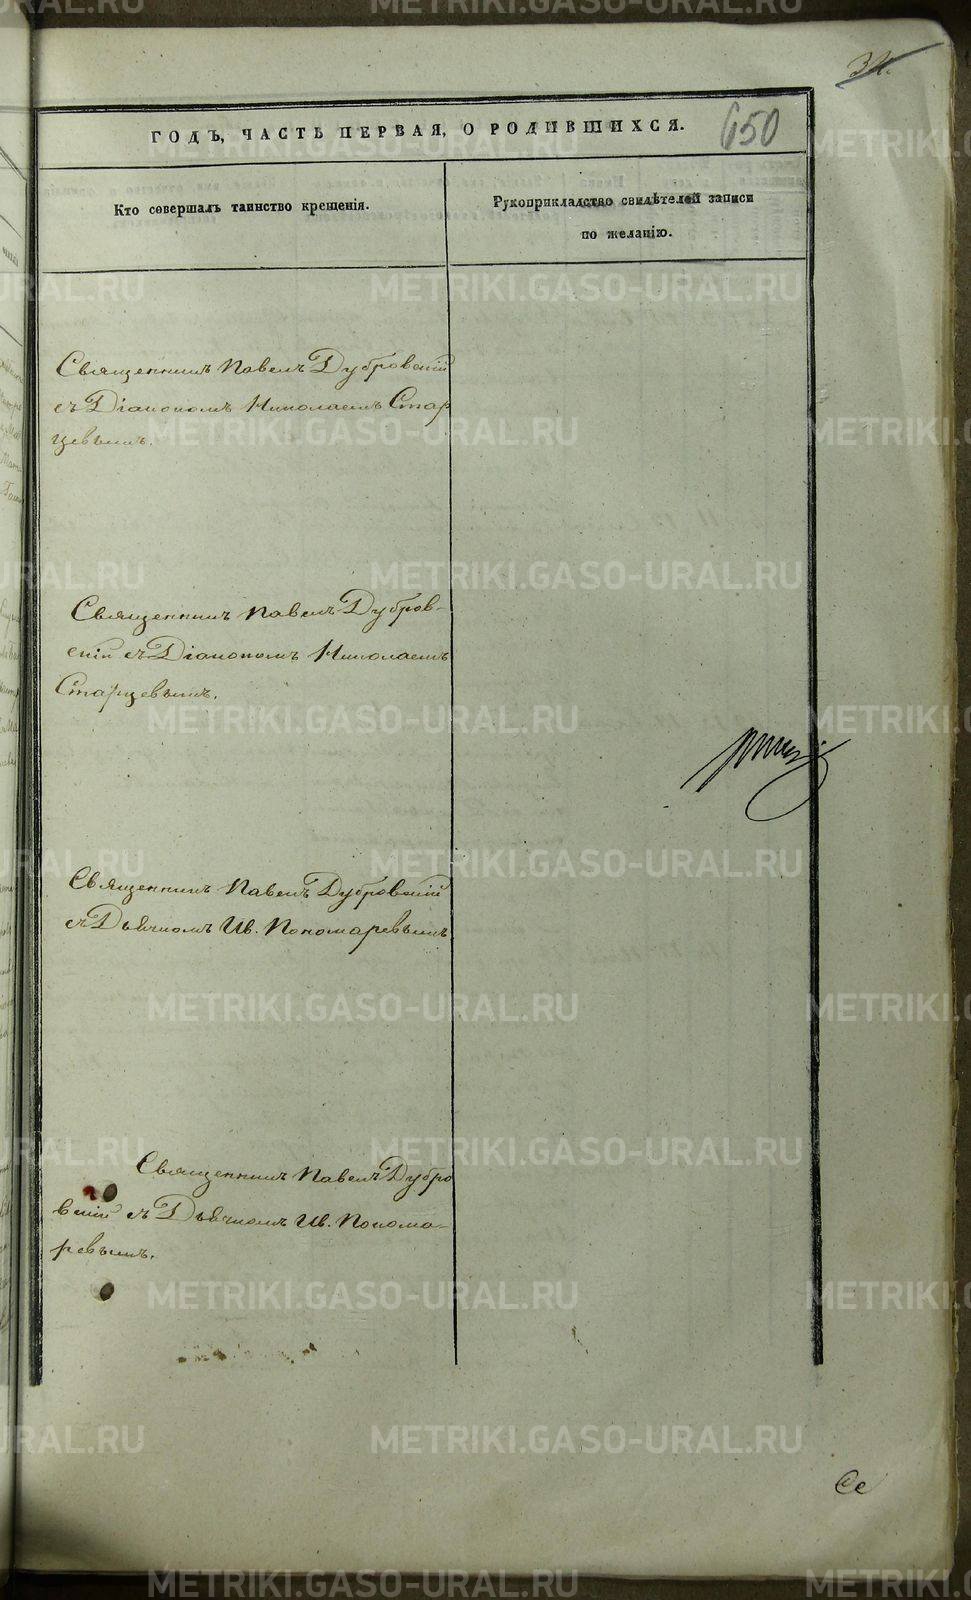 ГОДЪ, ЧАСТЬ ПЕРВАЯ, О РОДИВШИХСЯ.
650
Кто совершалъ таинство крещенія.
Рукоприкладство свидѣтелей записи
по желанію.
Священникъ Павелъ Дубровскій
съ Діакономъ Николаемъ Стар
цевымъ.
Священникъ Павелъ Дубров-
скій съ Діакономъ Николаемъ
Старцевымъ.
Священникъ Павелъ Дубровскій
съ Дьячкомъ Ив. Пономаревымъ
Священникъ Павелъ Дубро
вскій съ Дьячкомъ Ив. Понома-
ревымъ.
Се
METRIKI.GASO-URAL.RU